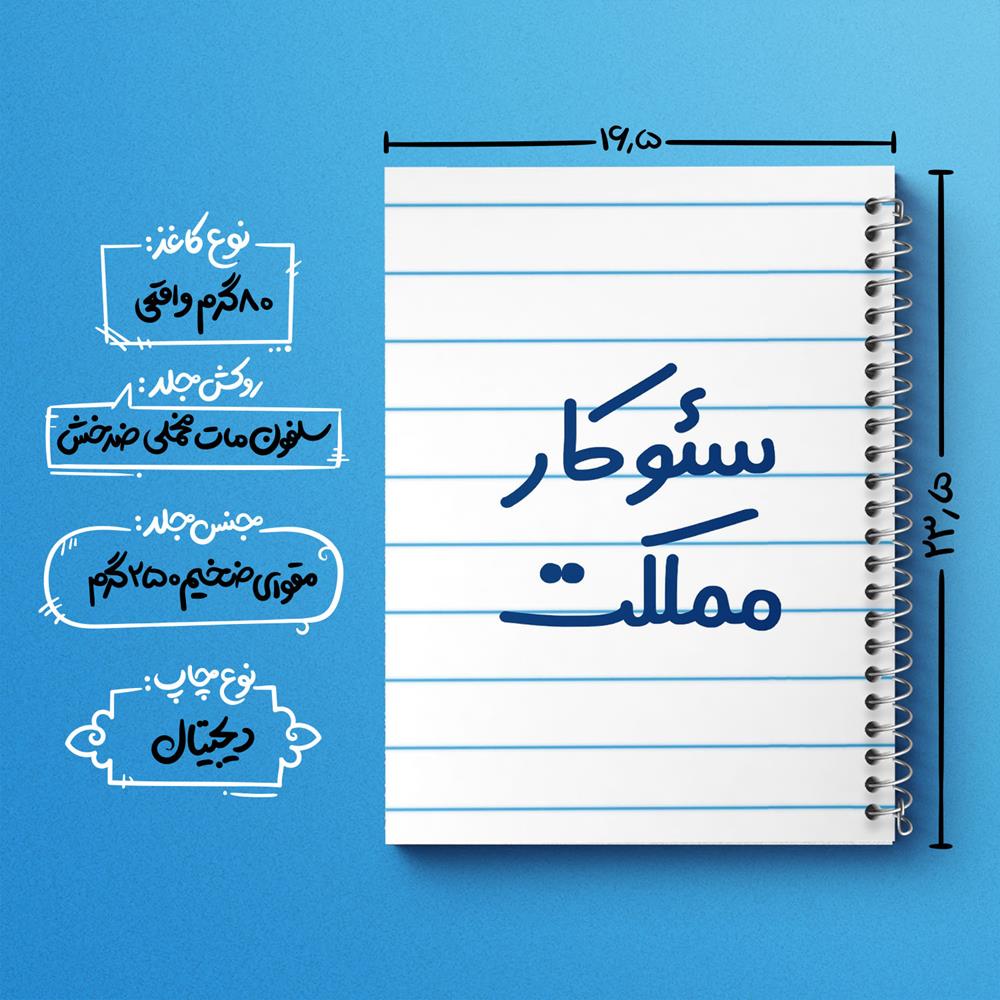 ۱۶٫۵
۲۳٫۵
سئوکار
مملکت
نوع کاغذ:
۸۰ گرم واقعی
روکش جلد:
سلفون مات مخملی ضدخش
جنس جلد:
مقوای ضخیم ۲۵۰ گرم
نوع چاپ:
دیجیتال